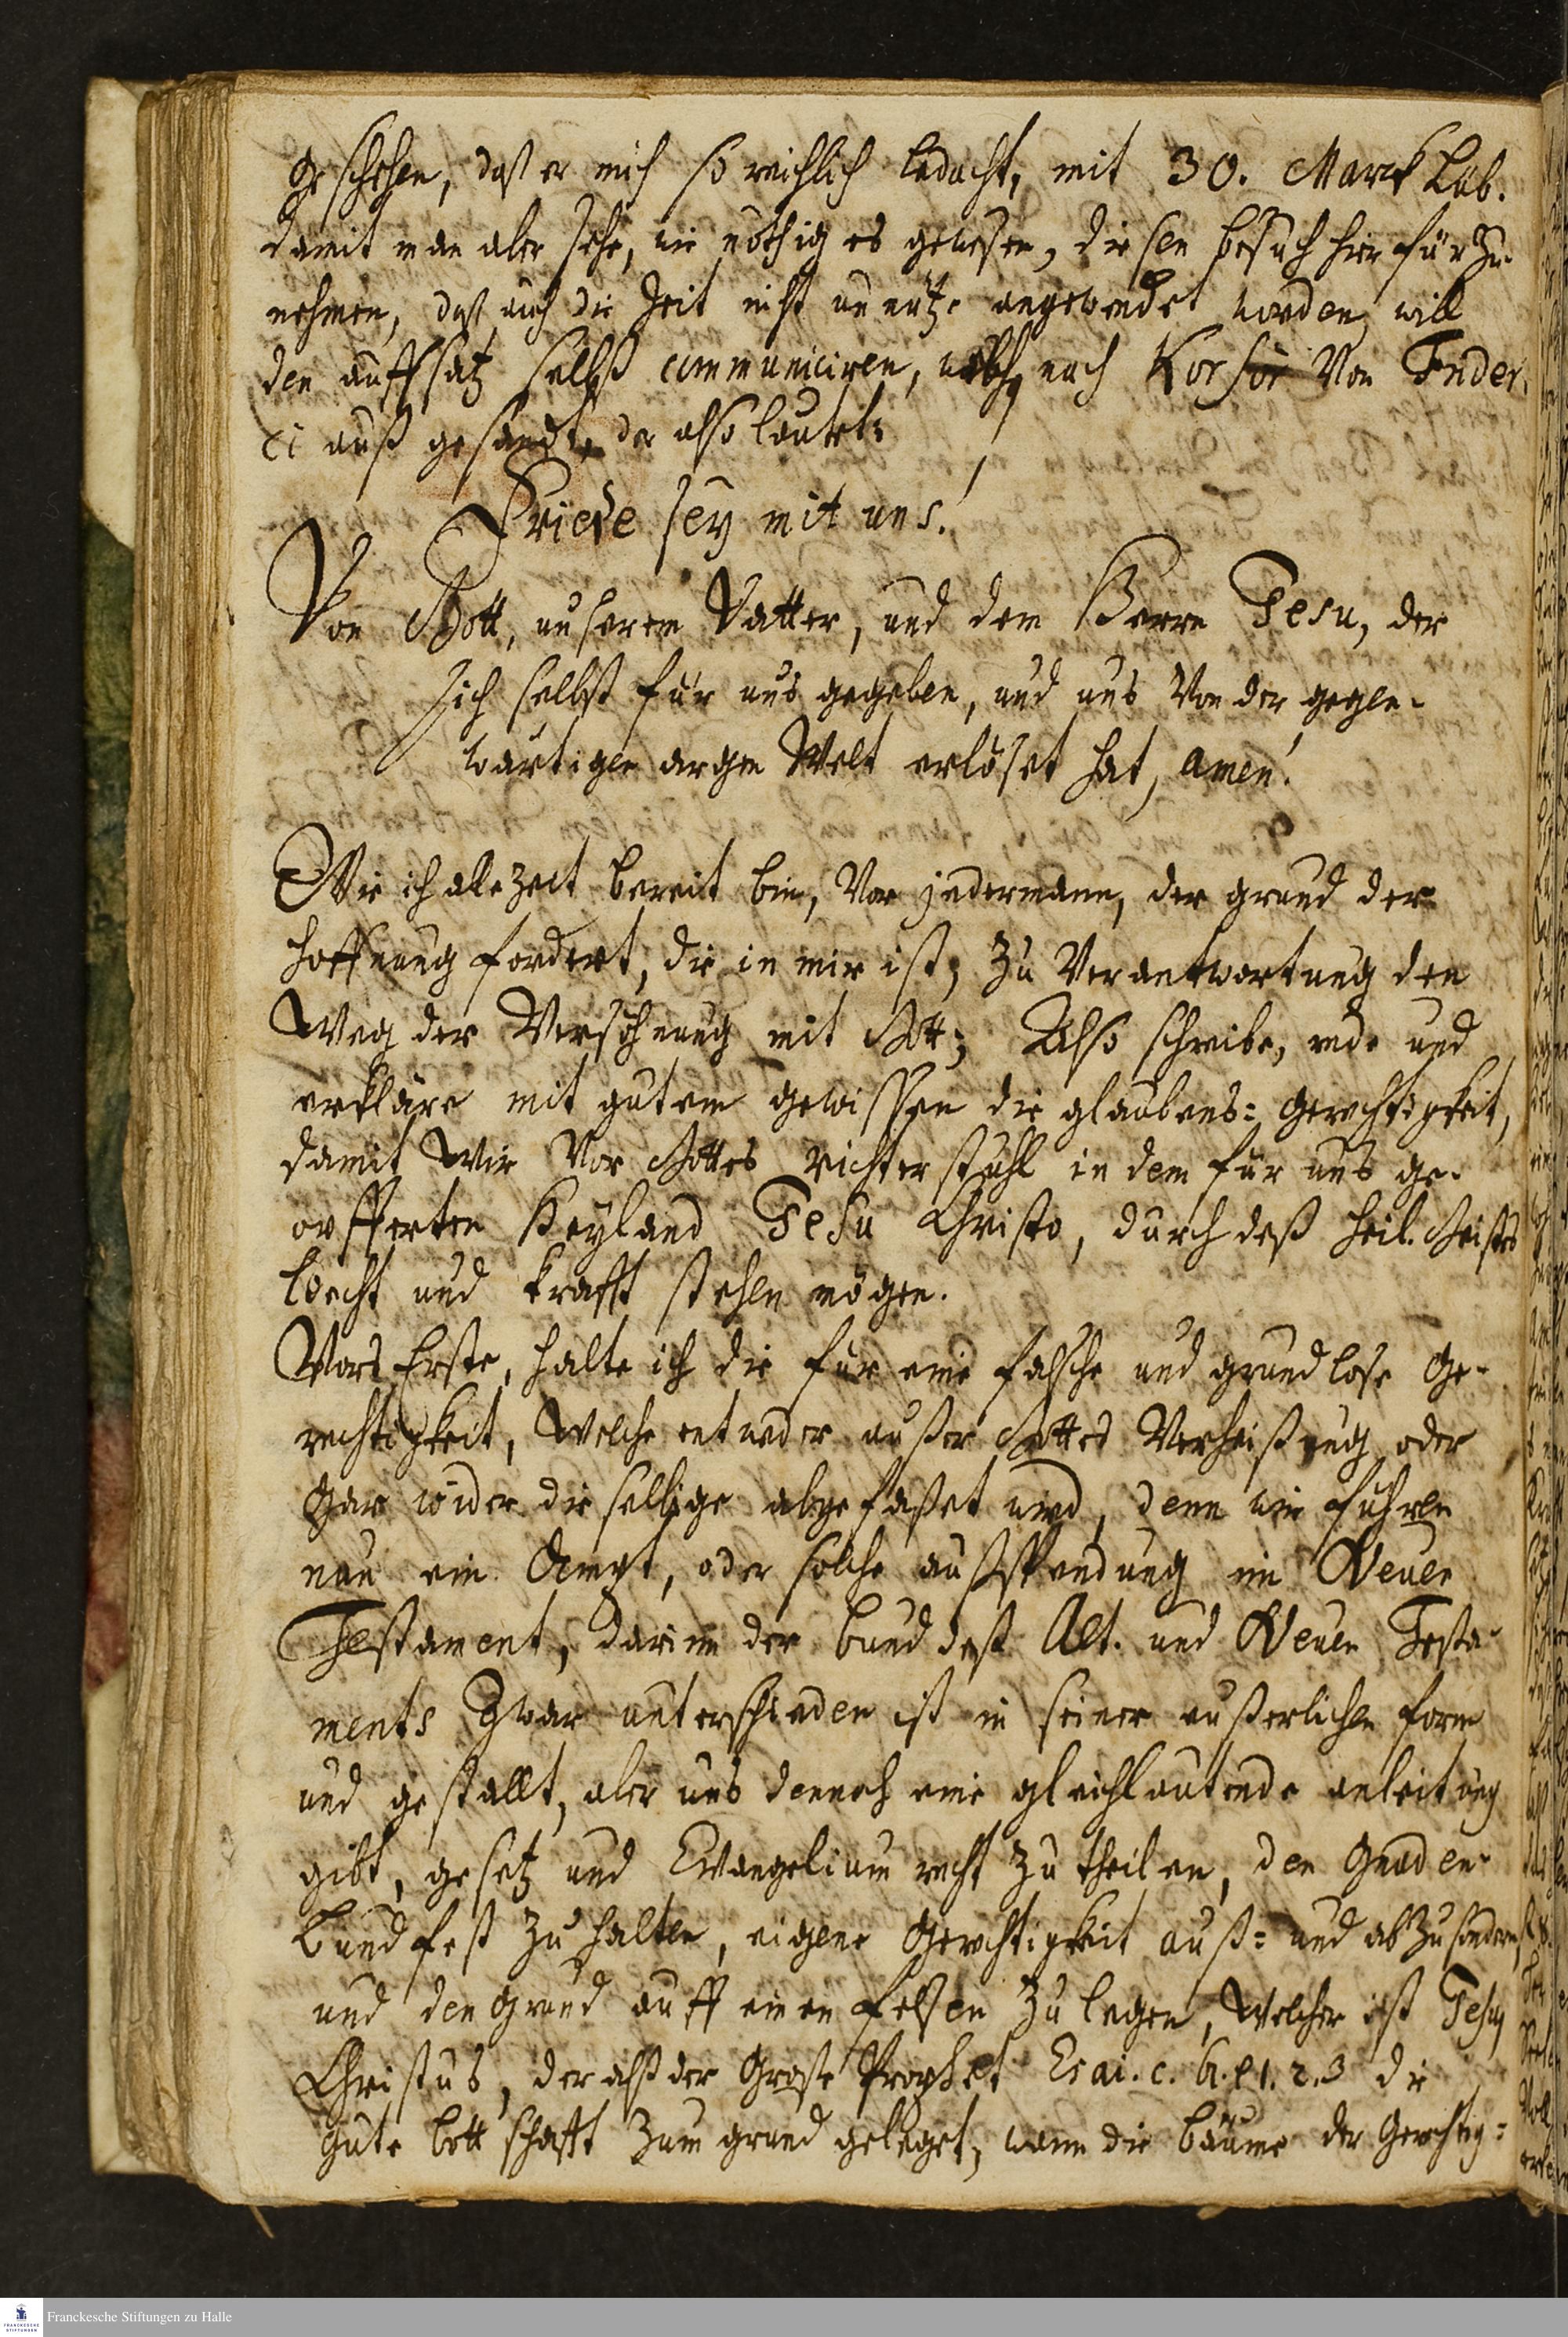 geschehen, daß er mich so reichlich bedacht, mit 30. Marck Lüb.
damit man aber sehe, wie nöthig es gewesen, diesen besuch hier für Zu
nehmen, daß auch die Zeit nicht unnütz angewendet worden, will
den auffsatz selbst communiciren, nach Korsör Von
auß gesandt, der also lautet:
Friede sey mit uns!
Von Gott, unserem Vatter, und dem Herrn Jesu, der
sich selbst für uns gegeben, und uns Von der gegen-
wärtigen argen Welt erlöset hat, amen!
Wie ich alezeit bereit bin, Vor jedermann, der grund der
hoffnung fordert, die in mir ist, Zu Verantwortung den
Weg der Versöhnung mit Gott; Also schreibe, rede und
erkläre mit gutem gewissen die glaubens= gerechtigkeit,
damit Wir Vor Gottes richterstuhl in dem für uns ge-
opfferten Heyland Jesu Christo, durch deß heil. Geistes
Liecht und krafft stehen mögen.
Vors Erste, halte ich die für eine falsche und grundlose Ge-
rechtigkeit, Welche entweder außer Gottes Verheißung oder
Gar wider dieselbige abgefaßet wird, denn wir führen
nun ein Ampt, oder solche außspendung im Neuen
Thestament, darinn der bund deß Alt. und Neuen Testa-
ments Zwar unterschieden ist in seiner außerlichen form
und gestallt, aber uns dennoch eine gleichlautende anleitung
gibt, gesetz und Evangelium recht Zu theilen, den Gnaden-
bund fest Zu halten, eigene Gerechtigkeit auß= und abZusondern
und den Grund auff einen felsen Zu legen, Welcher ist Jesus
Christus, der alß der Große Prophet Esai. c. 61. 1. 2. 3 die
Gute bottschafft Zum grund geleget, wann die bäume der Gerechtig=
Franckesche Stiftungen zu Halle